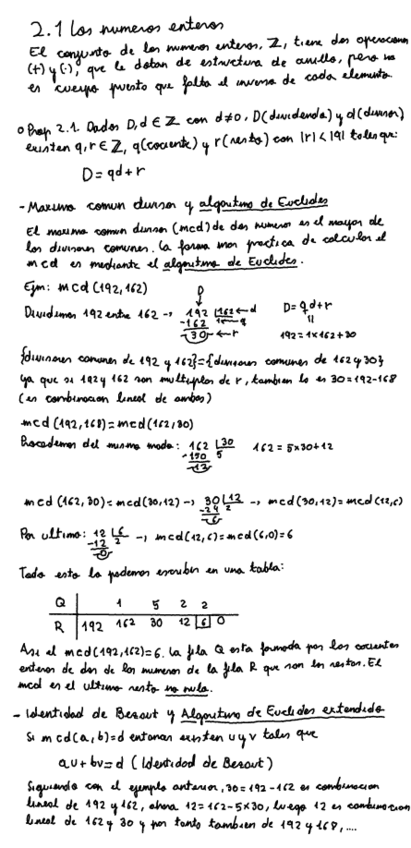 2.1 Los numeros enteros
El conjunto de los numeros enteros, ℤ, tiene dos operaciones
(+) y (·), que le dotan de estructura de anillo, pero no
es cuerpo puesto que falta el inverso de cada elemento
o Prop 2.1. Dados D, d ∈ ℤ con d≠0, D(dividendo) y d(divisor)
existen q, r ∈ ℤ, q(cociente) y r(resto) con |r| < |q| tales que:
D = qd + r
- Maximo comun divisor y algoritmo de Euclides
El maximo comun divisor (mcd) de dos numeros es el mayor de
los divisores comunes. La forma mas practica de calcular el
mcd es mediante el algoritmo de Euclides.
Ejm: mcd (192, 162)
D
Dividimos 192 entre 162 → 192 |162 ← d D = qd + r
-162 1 ← q =
30 ← r 192 = 1×162+30
{divisores comunes de 192 y 162} = {divisores comunes de 162 y 30}
ya que si 192 y 162 son multiplos de r, tambien lo es 30 = 192-168
(es combinacion lineal de ambos)
mcd (192, 168) = mcd (162, 30)
Procedemos del mismo modo: 162 |30 162 = 5×30+12
-150 5
12
mcd (162, 30) = mcd (30, 12) → 30 |12 → mcd (30, 12) = mcd (12, 6)
-24 2
6
Por ultimo: 12 |6 → mcd (12, 6) = mcd (6, 0) = 6
-12 2
0
Todo esto lo podemos escribir en una tabla:
Q | 1 5 2 2
R | 192 162 30 12 |6| 0
Asi el mcd (192, 162) = 6. La fila Q esta formada por los cocientes
enteros de dos de los numeros de la fila R que son los restos. El
mcd es el ultimo resto no nulo.
- Identidad de Besout y Algoritmo de Euclides extendido
Si mcd (a, b) = d entonces existen u y v tales que
au + bv = d (Identidad de Besout)
Siguiendo con el ejemplo anterior, 30 = 192 - 162 es combinacion
lineal de 192 y 162, ahora 12 = 162 - 5×30, luego 12 es combinacion
lineal de 162 y 30 y por tanto tambien de 192 y 168, ....